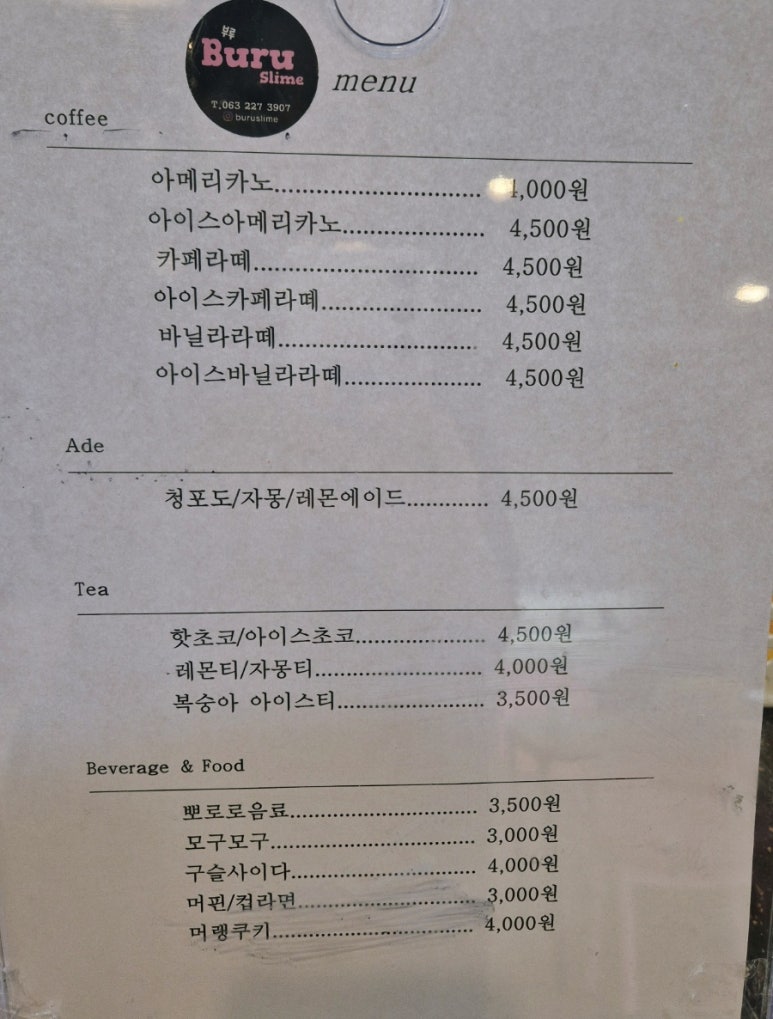 뷰루
Buru
Slime
T.063 227 3907
buruslime
menu
coffee
아메리카노.............................. 4,000원
아이스아메리카노.................... 4,500원
카페라떼................................. 4,500원
아이스카페라떼....................... 4,500원
바닐라라떼............................. 4,500원
아이스바닐라라떼.................... 4,500원
Ade
청포도/자몽/레몬에이드............ 4,500원
Tea
핫초코/아이스초코................... 4,500원
레몬티/자몽티......................... 4,000원
복숭아 아이스티...................... 3,500원
Beverage & Food
뽀로로음료............................. 3,500원
모구모구................................ 3,000원
구슬사이다............................. 4,000원
머핀/컵라면............................ 3,000원
머랭쿠키................................ 4,000원